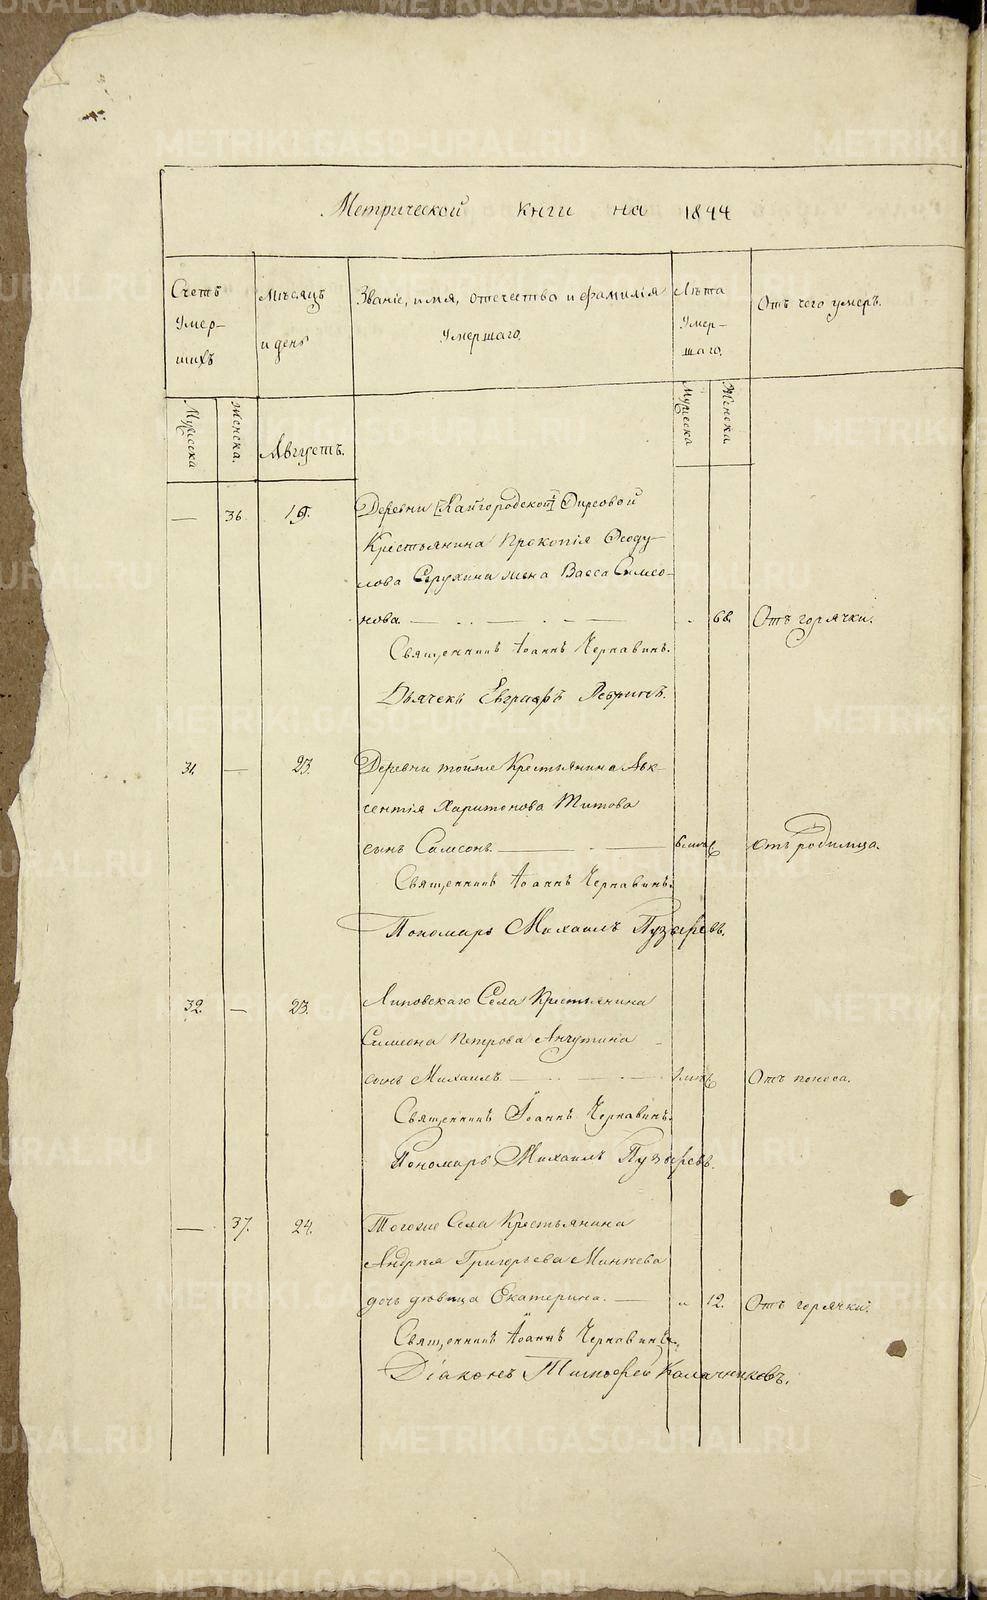 Метрической книги на 1844
Счетъ умер-шихъ
Мѣсяцъ и день
Званіе, имя, отечество и фамилія умершаго.
Лѣта умер-шаго.
Отъ чего умеръ.
Мужеска
Женска.
Августъ.
Мужеска
Женска
— 36. 19. Деревни [Кайгородской] Фирсовой
Крестьянина Прокопія Ѳеоду-
лова жена Васса Симео-
нова. 68. Отъ горячки.
Священникъ Іоаннъ Чернавинъ.
Дьячекъ Евграфъ
31. — 23. Деревни тойже Крестьянина Авк-
сентія Харитонова Титова
сынъ Самсонъ. Отъ родимца.
Священникъ Іоаннъ Чернавинъ.
Пономарь Михаилъ Пузыревъ.
32. — 23. Липовскаго Села Крестьянина
Симеона Петрова Анчутина
сынъ Михаилъ Отъ поноса.
Священникъ Іоаннъ Чернавинъ.
Пономарь Михаилъ Пузыревъ.
— 37. 24. Тогоже Села Крестьянина
Андрея Григорьева Минѣева
дочь дѣвица Екатерина. 12. Отъ горячки.
Священникъ Іоаннъ Чернавинъ.
Діаконъ Тимофей Калачниковъ.
METRIKI.GASO-URAL.RU